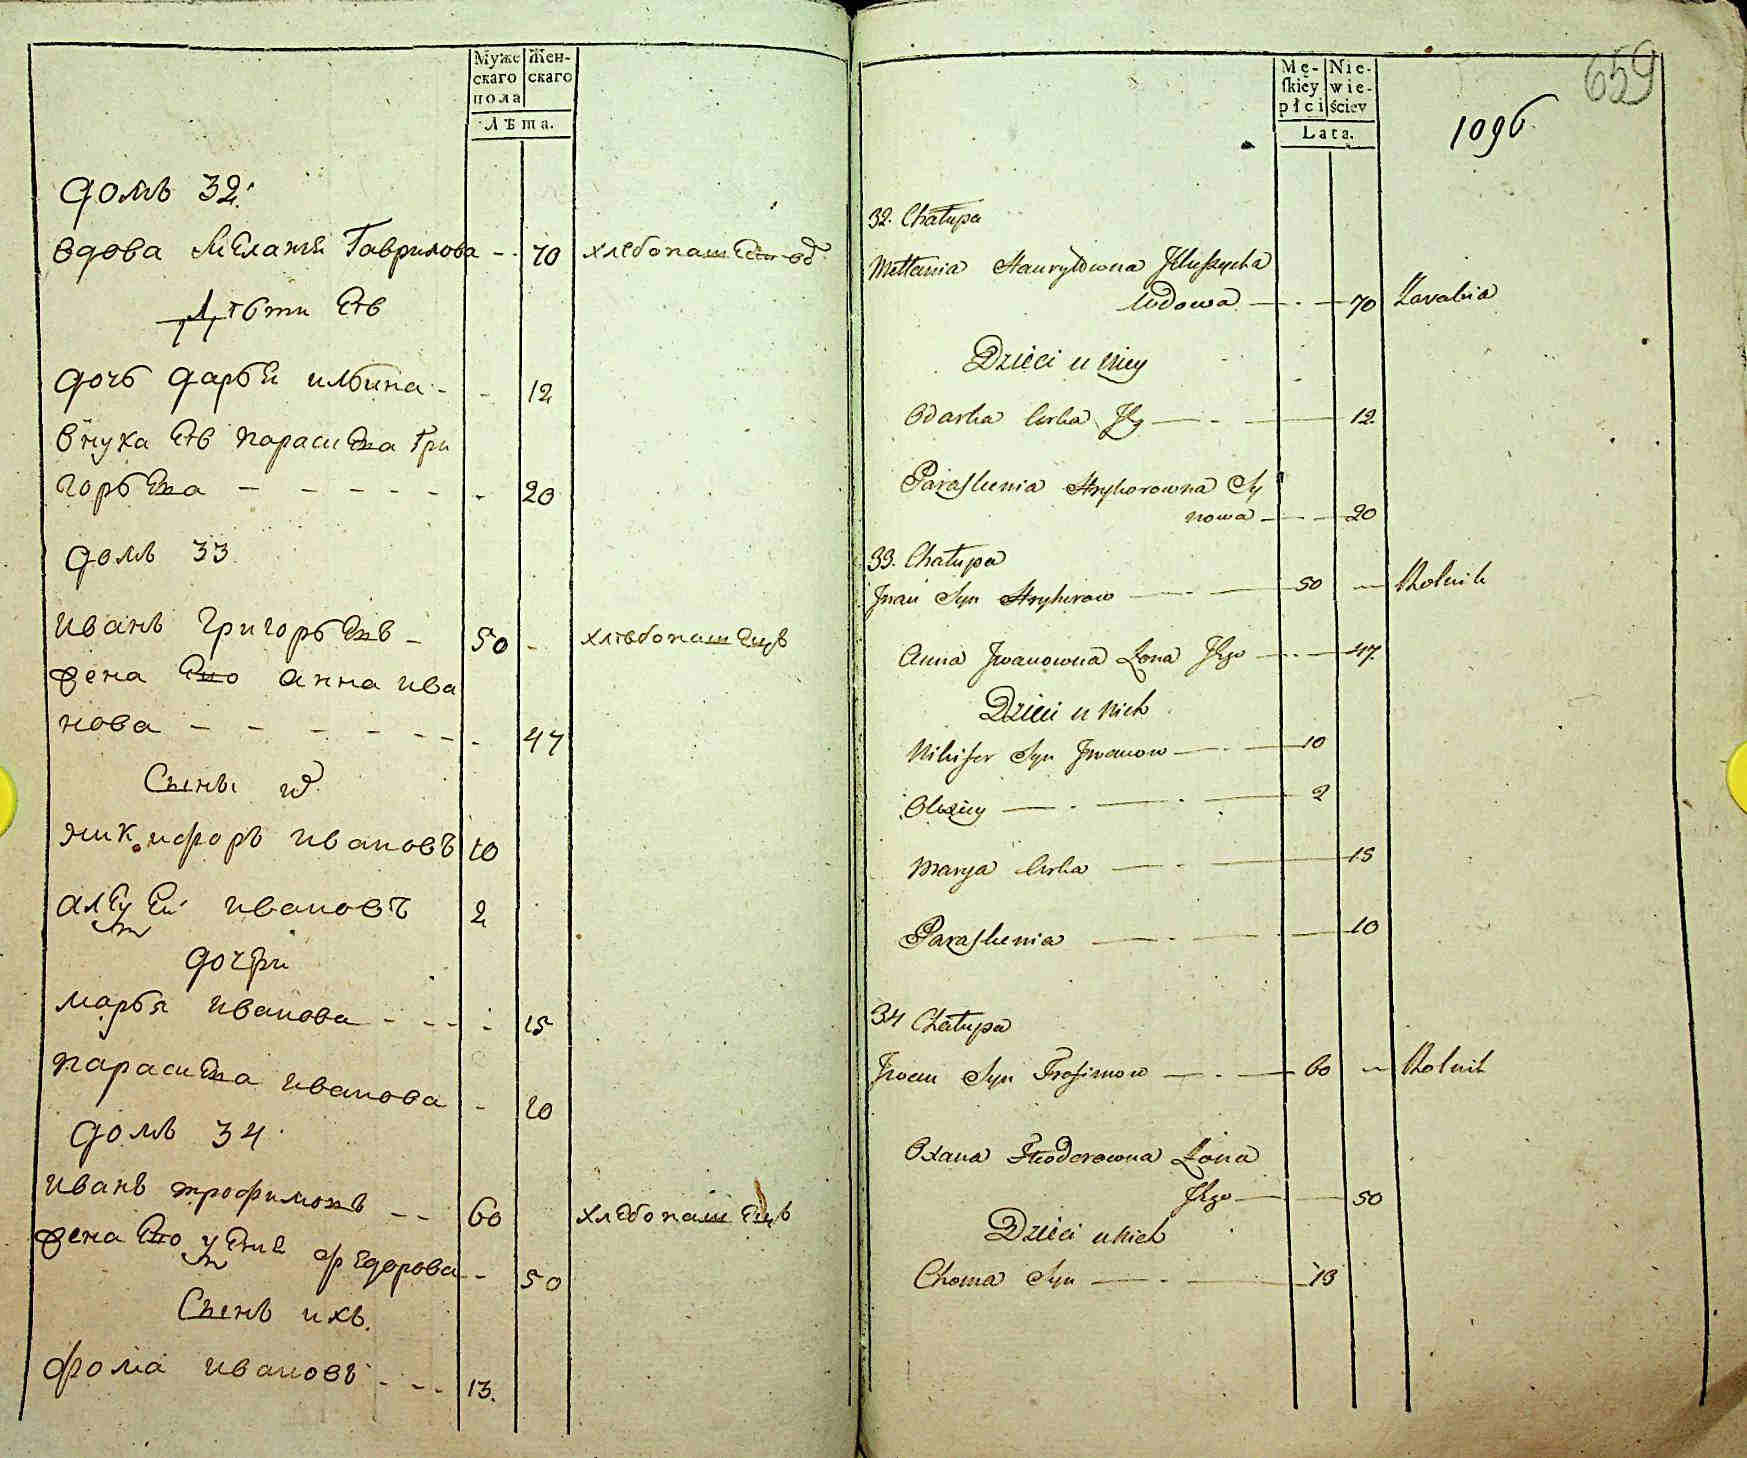 Муже
скаго
пола
Жен-
скаго
Лѣта.
домъ 32.
вдова Меланія Гаврилова - - 70
Дѣти Ея
дочь дарья ильина - - 12
внука Ея параскева Гри
горьева - - - - - - 20
домъ 33
иванъ григорьевъ - 50 - хлѣбопашецъ
жена Его анна ива
нова - - - - - - - 47
Сыны их
никифоръ ивановъ 10
алексей ивановъ 2
дочери
марья иванова - - - - 15
иванова - 10
домъ 34
иванъ трофимовъ - - 60 хлебопашецъ
жена Его федорова - 50
Сынъ ихъ.
фома ивановъ - - - 13.
Mę-
skiey
płci
Nie-
wie-
ściey
Lata.
659
1096
32. Chałupa
Mełania Hawryłowna
Wdowa — · — 70
Dzieci u niey
Odarka Corka Jey — · — 12.
Paraskenia Hryhorowna Sy
nowa — — 20
33. Chałupa
Jwan Syn Hryhorow — · — 50 — Rolnik
Anna Jwanowna Żona Jego — · — 47.
Dzieci u nich
Nikifor Syn Jwanow — · — 10
Olexiey — · — · — 2
Marya Corka — · — 15
Paraskenia — · — · — 10
34 Chałupa
Jwan Syn Trofimow — · — 60 — Rolnik
Oxana Theodorowna Żona
Jego — — 50
Dzieci u nich
Choma Syn — · — 13